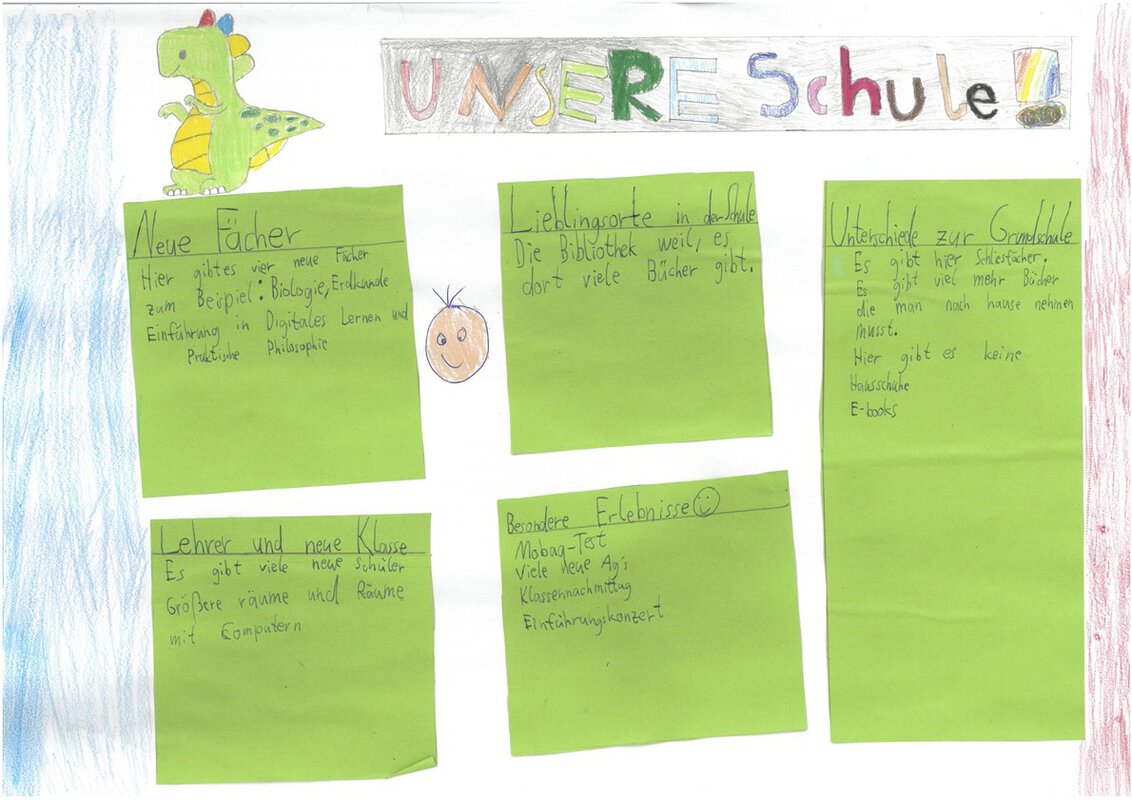 UNSERE Schule!
Neue Fächer
Hier gibtes vier neue Fächer
zum Beispiel: Biologie, Erdkunde
Einführung in Digitales Lernen und
Praktische Philosophie
Lieblingsorte in der Schule
Die Bibliothek weil, es
dort viele Bücher gibt.
Unterschiede zur Grundschule
Es gibt hier Schliesfächer.
Es gibt viel mehr Bücher
die man nach hause nehmen
musst.
Hier gibt es keine
Hausschuhe
E-books
Lehrer und neue Klasse
Es gibt viele neue schüler
Größere räume und Räume
mit Computern
Besondere Erlebnisse
Mobaq-Test
Viele neue Ag's
Klassennachmittag
Einführungskonzert